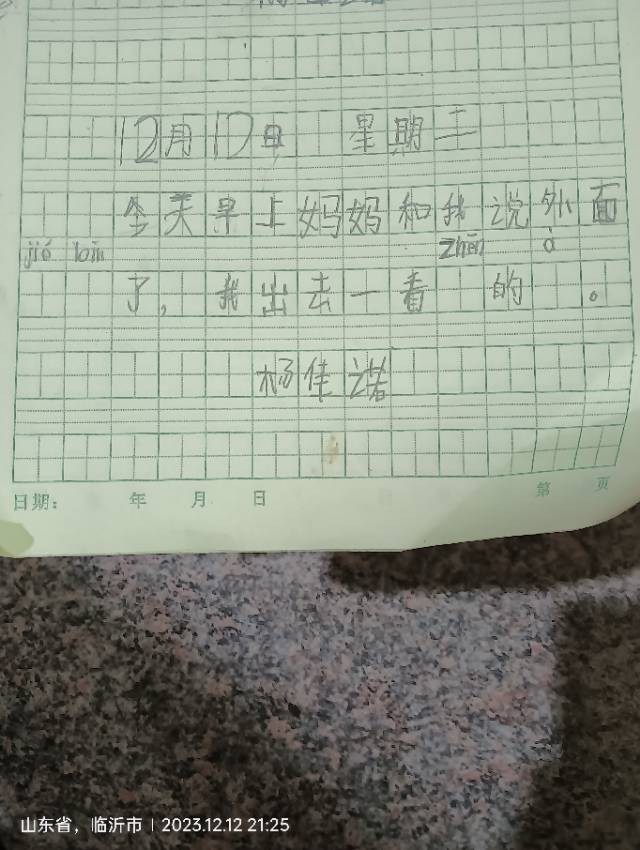 12月12日 星期二
今天早上妈妈和我说外面
jié bīn zhēn à
了，我出去一看 的 。
杨佳诺
日期： 年 月 日 第 页
山东省，临沂市 | 2023.12.12 21:25